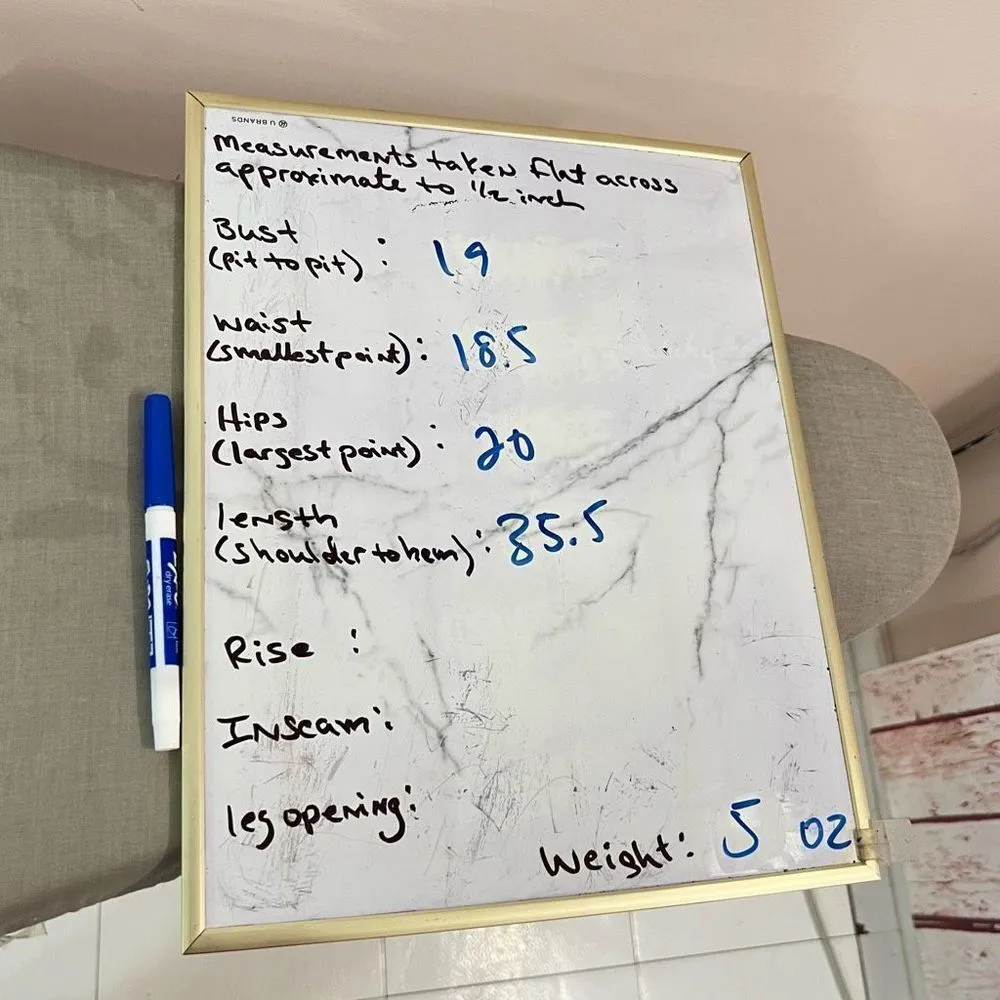 U BRANDS
Measurements taken flat across
approximate to 1/2 inch
Bust
(pit to pit) : 19
Waist
(smallest point) : 18.5
Hips
(largest point) : 20
length
(shoulder to hem) : 35.5
Rise :
Inseam :
leg opening :
Weight : 5 oz
EXPO
dry erase